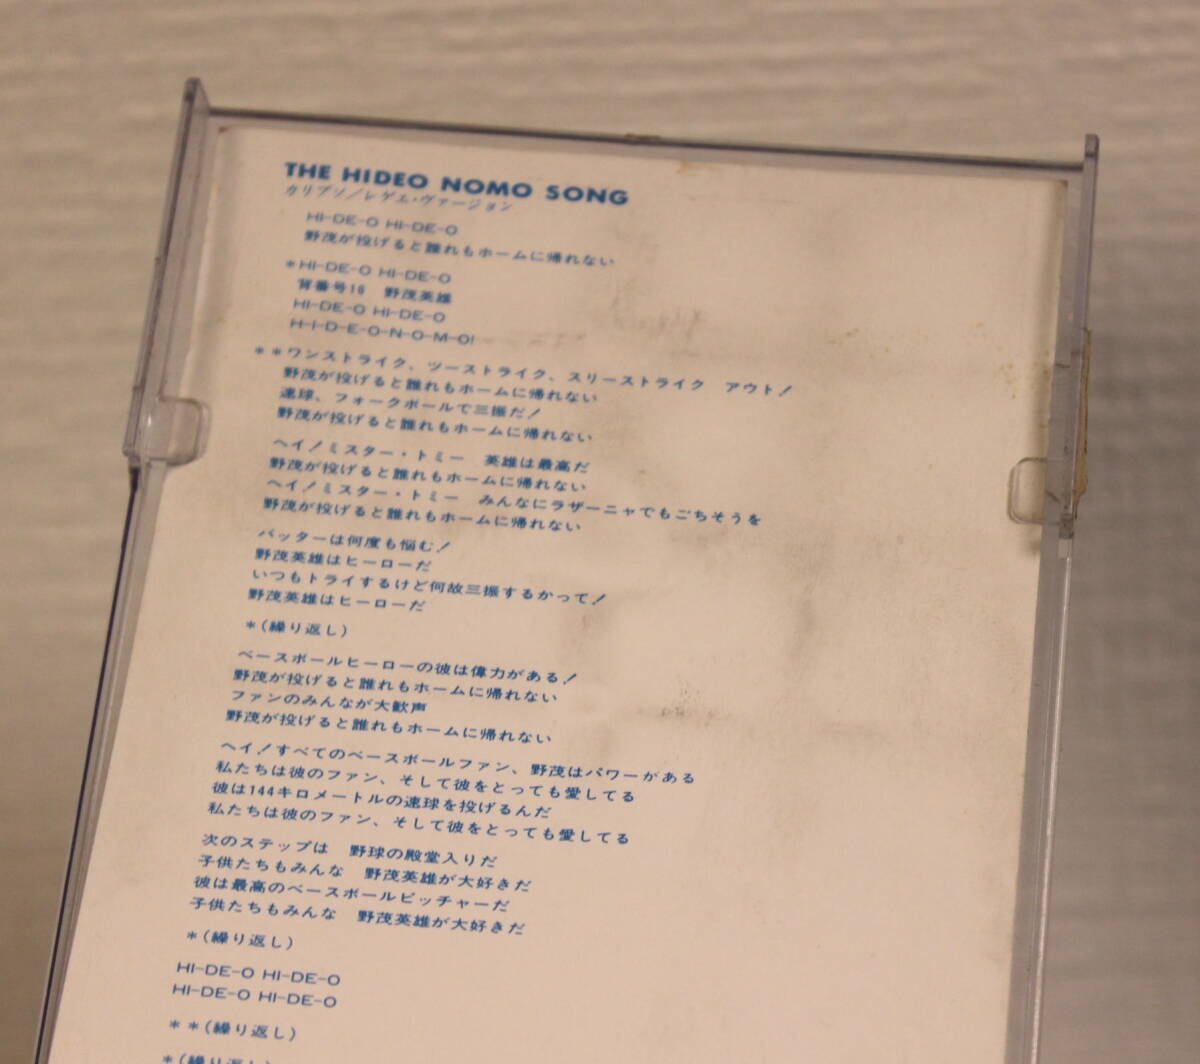 THE HIDEO NOMO SONG
カリプソ/レゲエ・ヴァージョン
HI-DE-O HI-DE-O
野茂が投げると誰れもホームに帰れない
*HI-DE-O HI-DE-O
背番号16 野茂英雄
HI-DE-O HI-DE-O
H-I-D-E-O-N-O-M-O!
**ワンストライク、ツーストライク、スリーストライク アウト!
野茂が投げると誰れもホームに帰れない
速球、フォークボールで三振だ!
野茂が投げると誰れもホームに帰れない
ヘイ!ミスター・トミー 英雄は最高だ
野茂が投げると誰れもホームに帰れない
ヘイ!ミスター・トミー みんなにラザーニャでもごちそうを
野茂が投げると誰れもホームに帰れない
バッターは何度も悩む!
野茂英雄はヒーローだ
いつもトライするけど何故三振するかって!
野茂英雄はヒーローだ
*(繰り返し)
ベースボールヒーローの彼は偉力がある!
野茂が投げると誰れもホームに帰れない
ファンのみんなが大歓声
野茂が投げると誰れもホームに帰れない
ヘイ!すべてのベースボールファン、野茂はパワーがある
私たちは彼のファン、そして彼をとっても愛してる
彼は144キロメートルの速球を投げるんだ
私たちは彼のファン、そして彼をとっても愛してる
次のステップは 野球の殿堂入りだ
子供たちもみんな 野茂英雄が大好きだ
彼は最高のベースボールピッチャーだ
子供たちもみんな 野茂英雄が大好きだ
*(繰り返し)
HI-DE-O HI-DE-O
HI-DE-O HI-DE-O
**(繰り返し)
*(繰り返し)